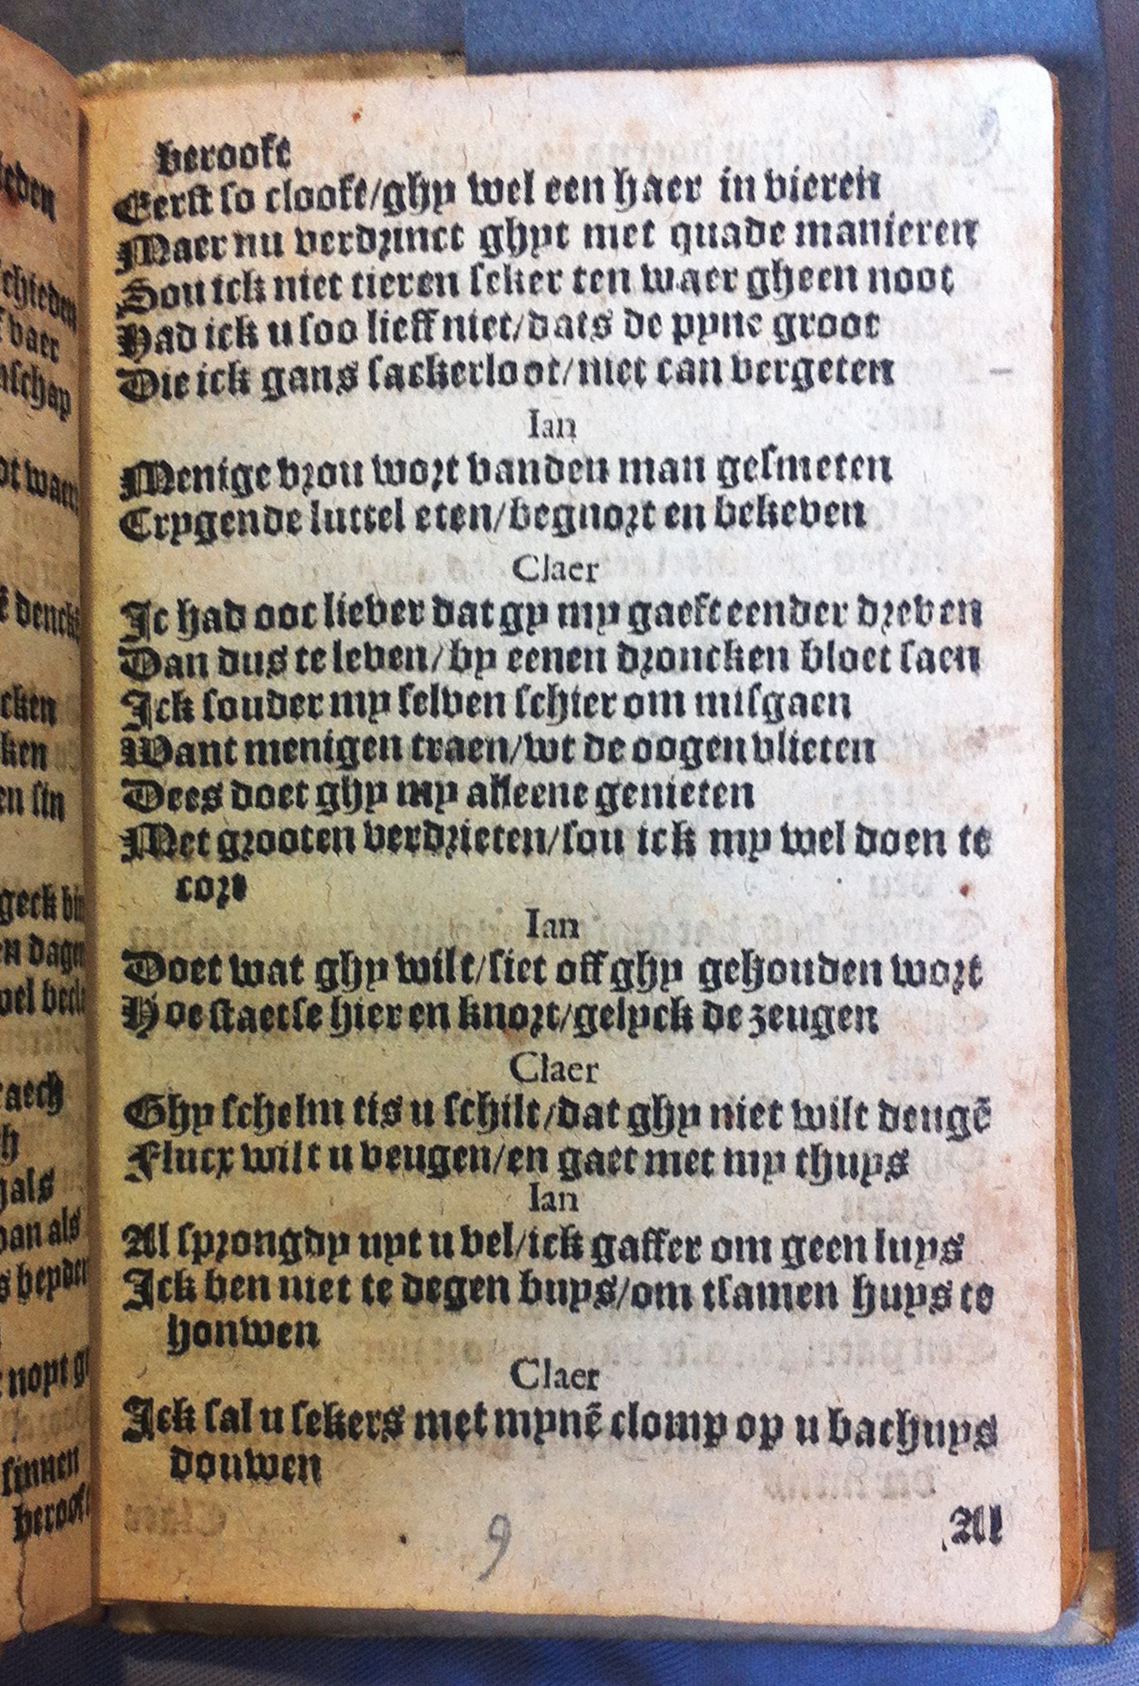 berooft
Eerst so clooft/ghy wel een haer in vieren
Maer nu verdrinct ghyt met quade manieren
Sou ick niet tieren seker ten waer gheen noot
Had ick u soo lieff niet/dats de pyne groot
Die ick gans sackerloot/niet can vergeten
Ian
Menige vrou wort vanden man gesmeten
Crygende luttel eten/begnort en bekeven
Claer
Ic had ooc liever dat gy my gaeft eender dreven
Dan dus te leven/by eenen droncken bloet saen
Ick souder my selven schier om misgaen
Want menigen traen/wt de oogen vlieten
Dees doet ghy my alleene genieten
Met grooten verdrieten/sou ick my wel doen te
cort
Ian
Doet wat ghy wilt/siet off ghy gehouden wort
Hoe staetse hier en knort/gelyck de zeugen
Claer
Ghy schelm tis u schilt/dat ghy niet wilt deugē
Flucx wilt u veugen/en gaet met my thuys
Ian
Al sprongdy uyt u vel/ick gaffer om geen luys
Ick ben niet te degen buys/om tsamen huys te
honwen
Claer
Ick sal u sekers met mynē clomp op u bachuys
douwen
9
Al